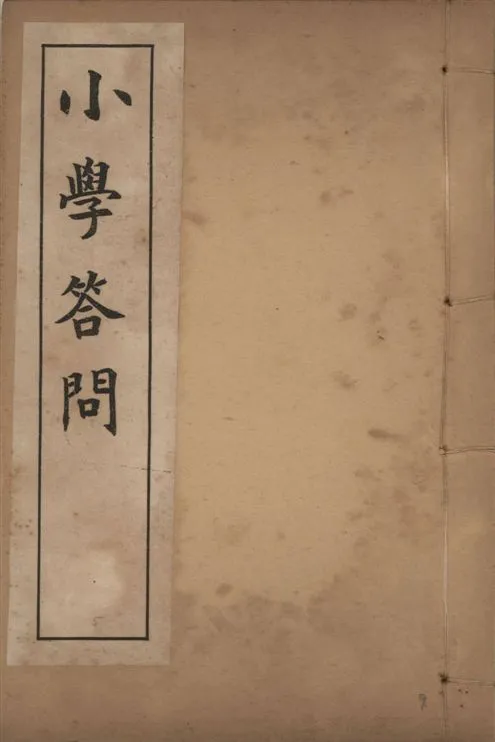 小學答問